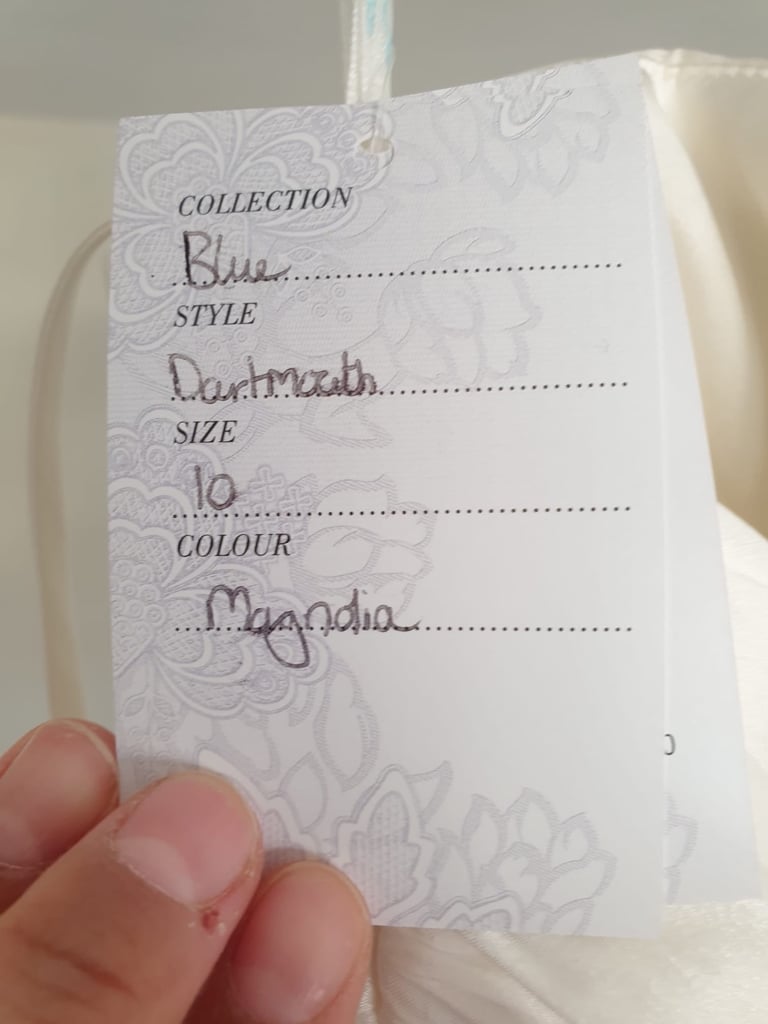 COLLECTION
Blue
STYLE
Dartmouth
SIZE
10
COLOUR
Magnolia